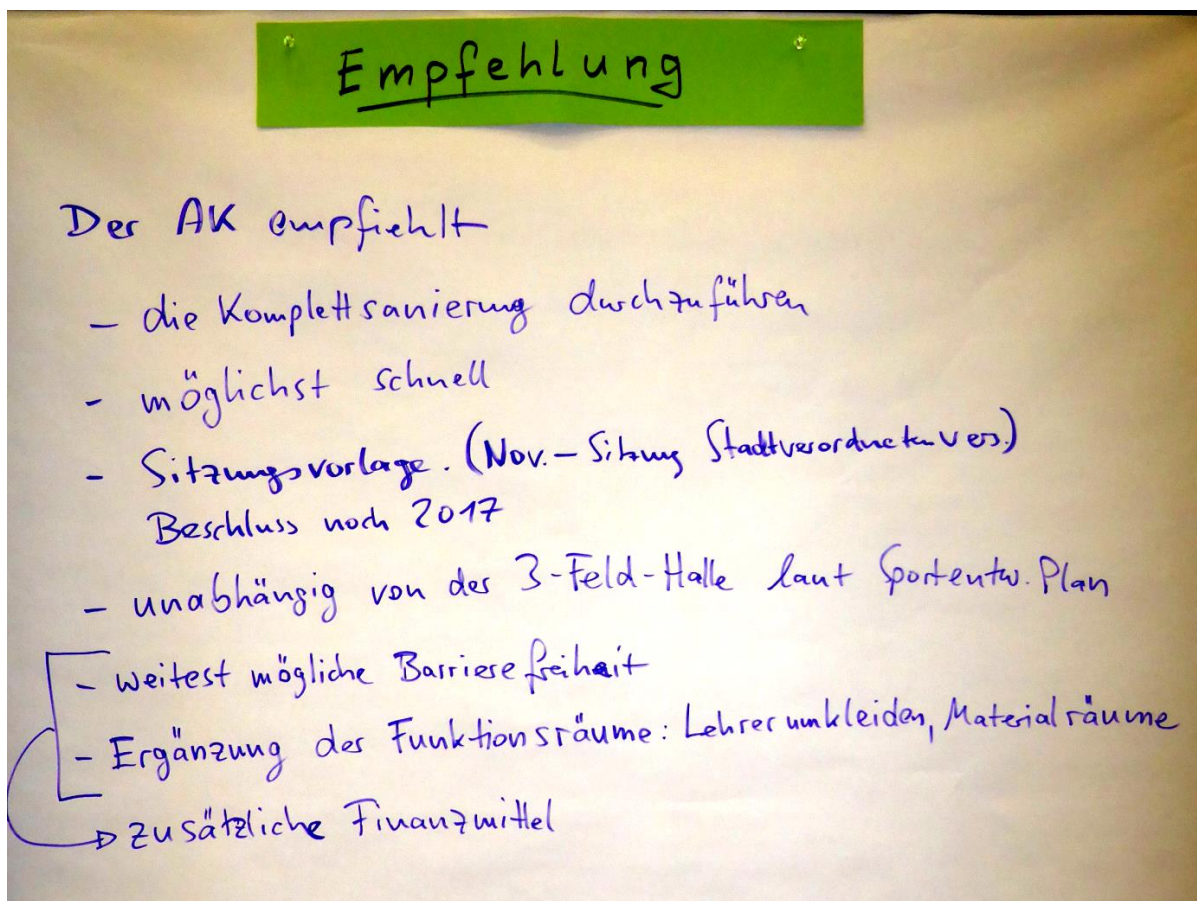 Empfehlung
Der AK empfiehlt
- die Komplettsanierung durchzuführen
- möglichst schnell
- Sitzungsvorlage. (Nov.-Sitzung Stadtverordnetenvers.)
Beschluss noch 2017
- unabhängig von der 3-Feld-Halle laut Sportentw. Plan
- weitest mögliche Barrierefreiheit
- Ergänzung der Funktionsräume: Lehrerumkleiden, Materialräume
→ zusätzliche Finanzmittel